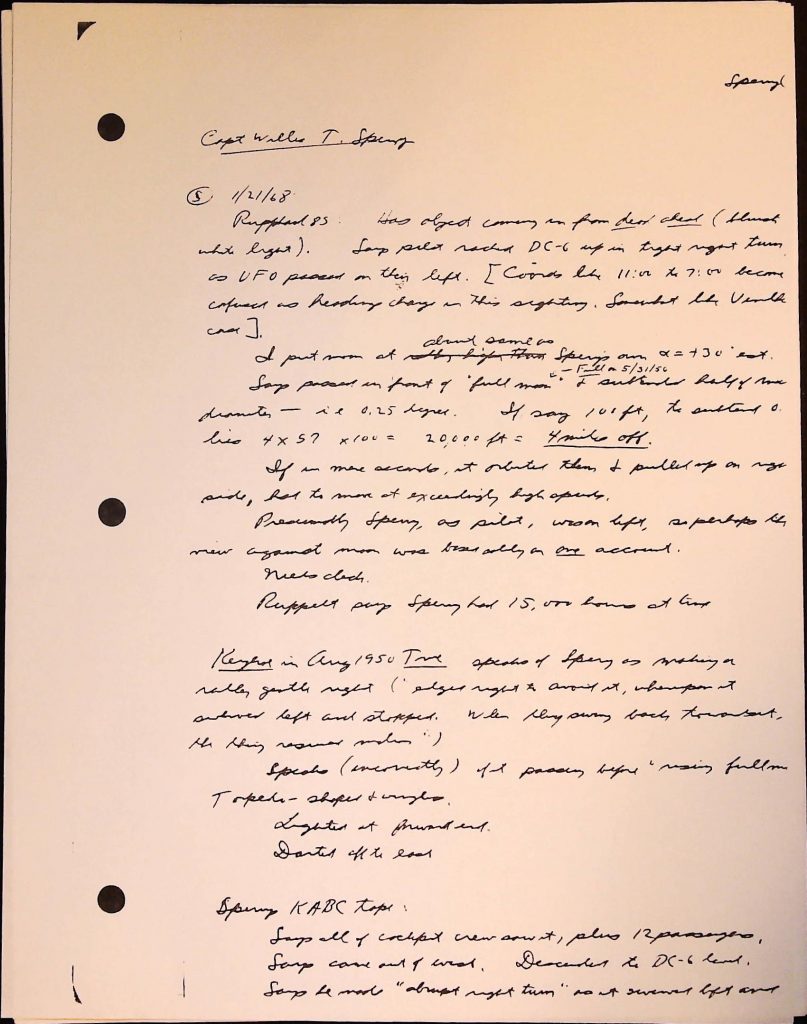 Sperry
Capt Willis T. Sperry
(S) 1/21/68
Ruppelt p 85: Has object coming in from dead ahead (bluish
white light). Says pilot racked DC-6 up in tight right turn
as UFO passed on their left. [Coords like 11:00 to 7:00 become
confused as heading change in this sighting. Somewhat like
case].
about same as
I put moon at Sperry's own α = +30° est.
— Full on 5/31/50
Says passed in front of "full moon" & subtended half of moon
diameter — i.e 0.25 degree. If say 100 ft, to subtend 0.
lies 4 x 57 x 100 = 20,000 ft = 4 miles off.
If in mere seconds, it orbited them & pulled up on right
side, had to move at exceedingly high speeds.
Presumably Sperry, as pilot, was on left, so perhaps the
view against moon was basically on one account.
Needs check.
Ruppelt says Sperry had 15,000 hours at time
Keyhoe in Aug 1950 True speaks of Sperry as making a
rather gentle right ("edged right to avoid it, whereupon it
swerved left and stopped. When they swung back toward it,
the thing resumed motion")
Speaks (incorrectly) of it passing before "rising full moon
Torpedo-shaped & wingless.
Lighted at forward end.
Darted off to east
Sperry KABC tape:
Says all of cockpit crew saw it, plus 12 passengers.
Says came out of west. Descended to DC-6 level.
Says he made "abrupt right turn" as it swerved left and